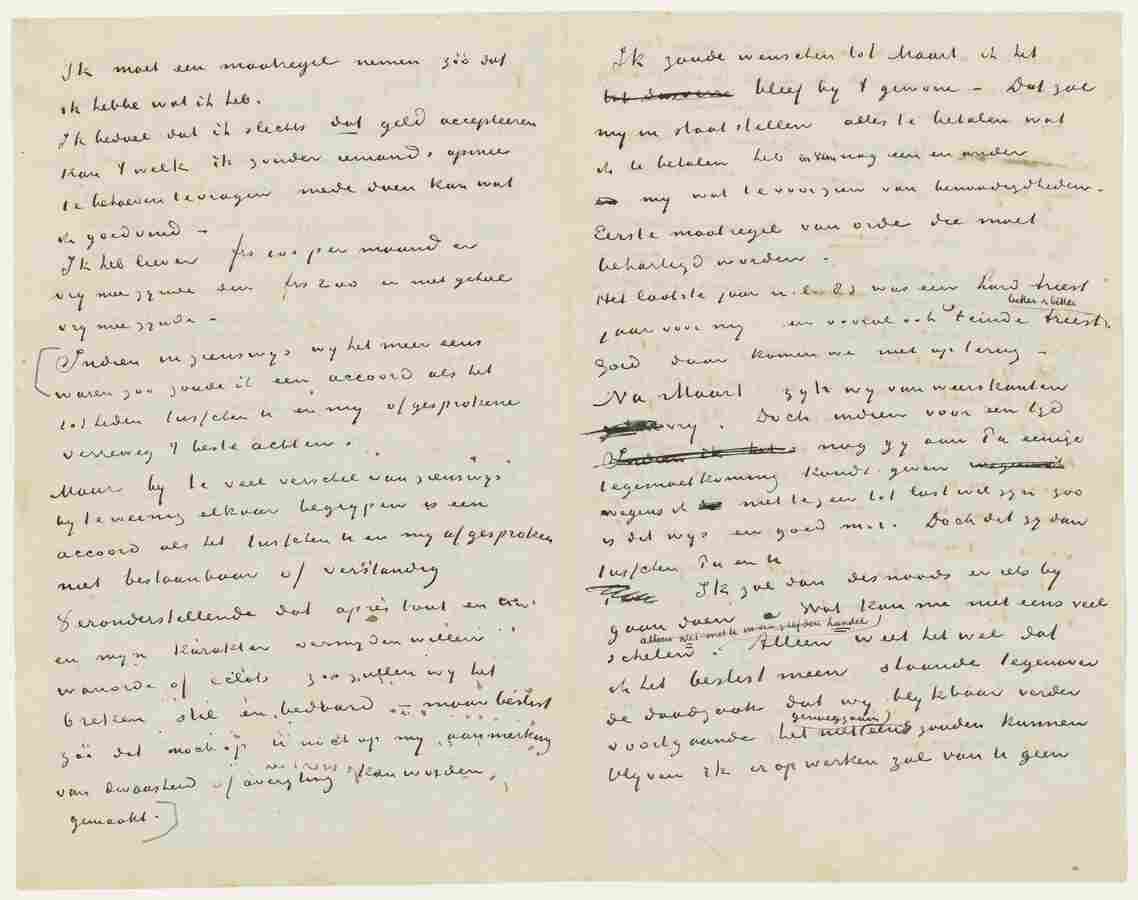 Ik moet een maatregel nemen zóó dat
ik hebbe wat ik heb.
Ik bedoel dat ik slechts dat geld accepteeren
kan 't welk ik zonder iemands opinie
te behoeven te vragen mede doen kan wat
ik goedvind –
Ik heb liever frs 100 per maand en
vrij mee zijnde dan frs 200 en niet geheel
vrij mee zijnde –
Indien in zienswijs wij het meer eens
waren zoo zoude ik een accoord als het
tot heden tusschen u en mij afgesprokene
verreweg 't beste achten.
Maar bij te veel verschil van zienswijs
bij te weinig elkaar begrijpen is een
accoord als het tusschen u en mij afgesproken
niet bestaanbaar of verstandig
Veronderstellende dat après tout en
en mijn karakter vermijden willen
wanorde of éclats zoo zullen wij het
breken stil en bedaard – maar beslist
zóó dat noch op u noch op mij aanmerking
van dwaasheid of overijling kan worden
gemaakt.
Ik zoude wenschen tot Maart ik het
bleef bij 't gewone – Dat zal
mij in staat stellen alles te betalen wat
ik te betalen heb en nog een en ander
mij wat te voorzien van benoodigdheden –
Eerste maatregel van orde die moet
behartigd worden –
Het laatste jaar n.l. 83 was een hard triest
bitter bitter
jaar voor mij en vooral ook 't einde triest.
Goed daar komen we niet op terug –
Na Maart zijt wij van weerskanten
vrij. Doch indien voor een tijd
Indien ik het nog gij aan Pa eenige
tegemoetkoming kondt geven
wegens ik niet te zeer tot last wil zijn zoo
is dit wijs en goed m.i. Doch dit zij dan
tusschen Pa en u
Ik zal dan desnoods er iets bij
gaan doen Wat kan me niet eens veel
alleen niet in schilderijen handel
schelen. Alleen weet het wel dat
ik het beslist meen staande tegenover
de daadzaak dat wij blijkbaar verder
genoegzaam
voortgaande het niet eens zouden kunnen
blijven ik er op werken zal van u geen